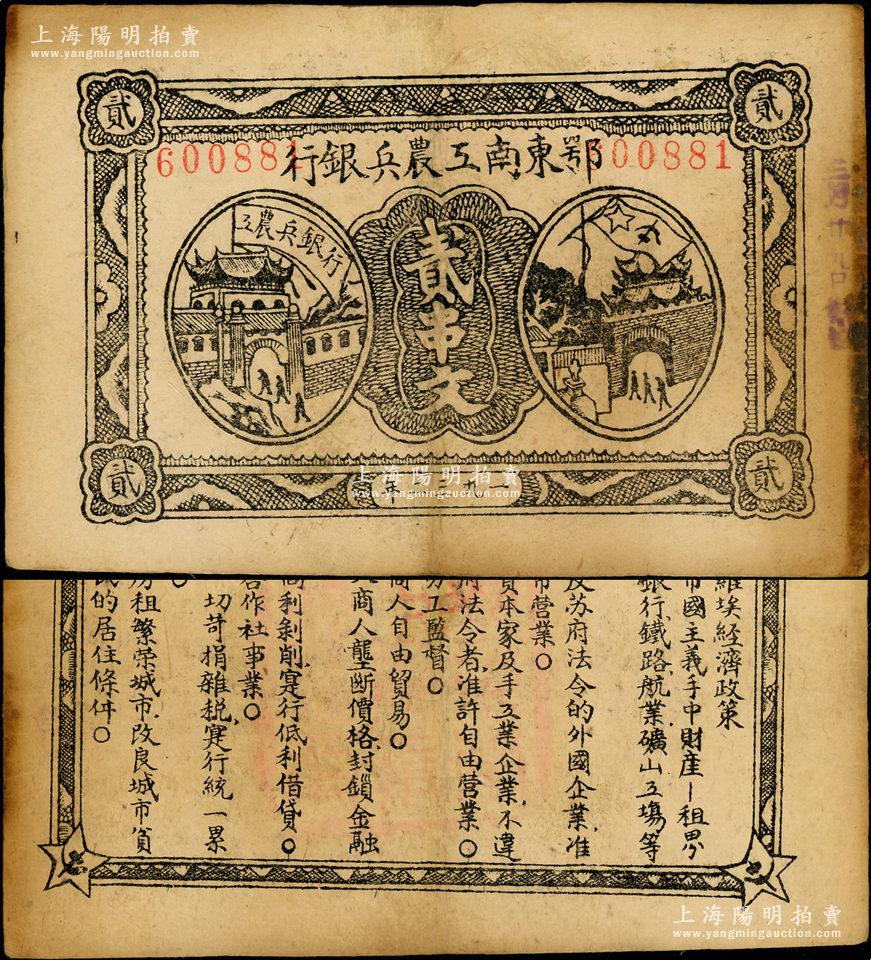 上海陽明拍賣
www.yangmingauction.com
貳
貳
600881
鄂東南工農兵銀行
600881
工農兵銀行
貳串文
三月十
貳
貳
上海陽明拍賣
www.yangmingauction.com
維埃經濟政策
帝國主義手中財產—租界
銀行,鐵路,航業,礦山工場等
反苏府法令的外國企業,准
營業○
資本家及手工業企業,不違
府法令者,准許自由營業○
工監督○
商人自由貿易○
商人壟斷價格,封鎖金融
高利剝削,寔行低利借貸○
合作社事業○
切苛捐雜稅,寔行統一累
○
房租繁荣城市,改良城市貧
民的居住條件○
上海陽明拍賣
www.yangmingauction.com